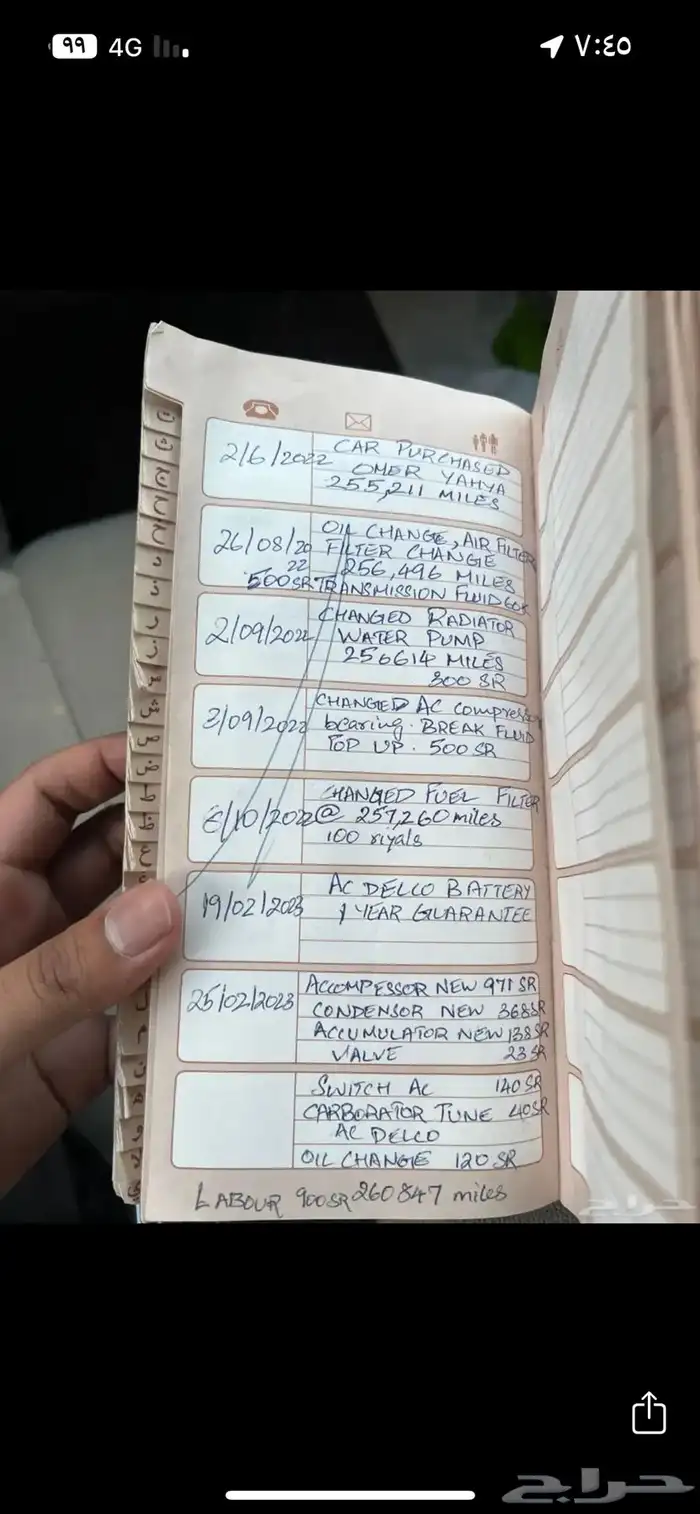 ٩٩
4G
٧:٤٥
2/6/2022
CAR PURCHASED
OMER YAHYA
255,211 MILES
26/08/20
22
500SR
OIL CHANGE, AIR FILTER
FILTER CHANGE
256,496 MILES
TRANSMISSION FLUID
2/09/2022
CHANGED RADIATOR
WATER PUMP
256614 MILES
300 SR
3/09/2022
CHANGED AC compressor
bearing. BREAK FLUID
TOP UP. 500 SR
6/10/2022
CHANGED FUEL FILTER
@ 257,260 miles
100 riyals
19/02/2023
AC DELCO BATTERY
1 YEAR GUARANTEE
25/02/2023
ACCOMPESSOR NEW 971 SR
CONDENSOR NEW 368SR
ACCUMULATOR NEW 138SR
VALVE 23 SR
SWITCH AC 140 SR
CARBORATOR TUNE 40SR
AC DELCO
OIL CHANGE 120 SR
LABOUR 900SR 260847 miles
حراج
حراج